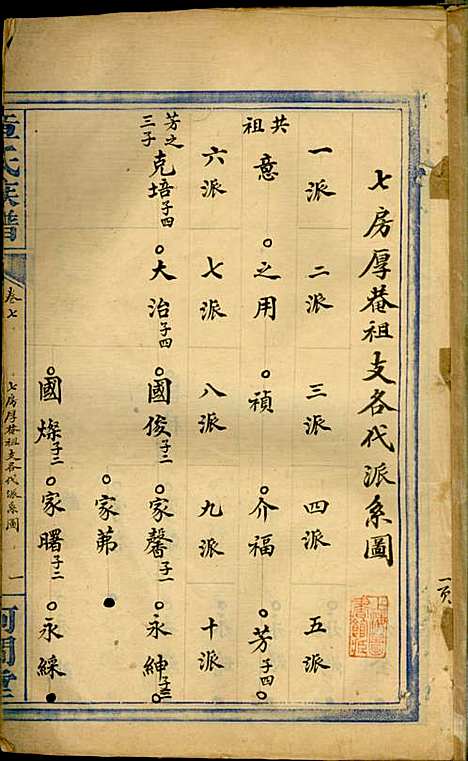 七房厚菴祖支各代派系圖
一派 二派 三派 四派 五派
共祖
意 之用 禎 介福 芳子四
六派 七派 八派 九派 十派
芳之三子
克培子四 大治子四 國俊子二 家馨子一 永紳子三
家弟
國燦子二 家曙子二 永綵
氏族譜
卷七
七房厚菴祖支各代派系圖
一
河間堂
一頁